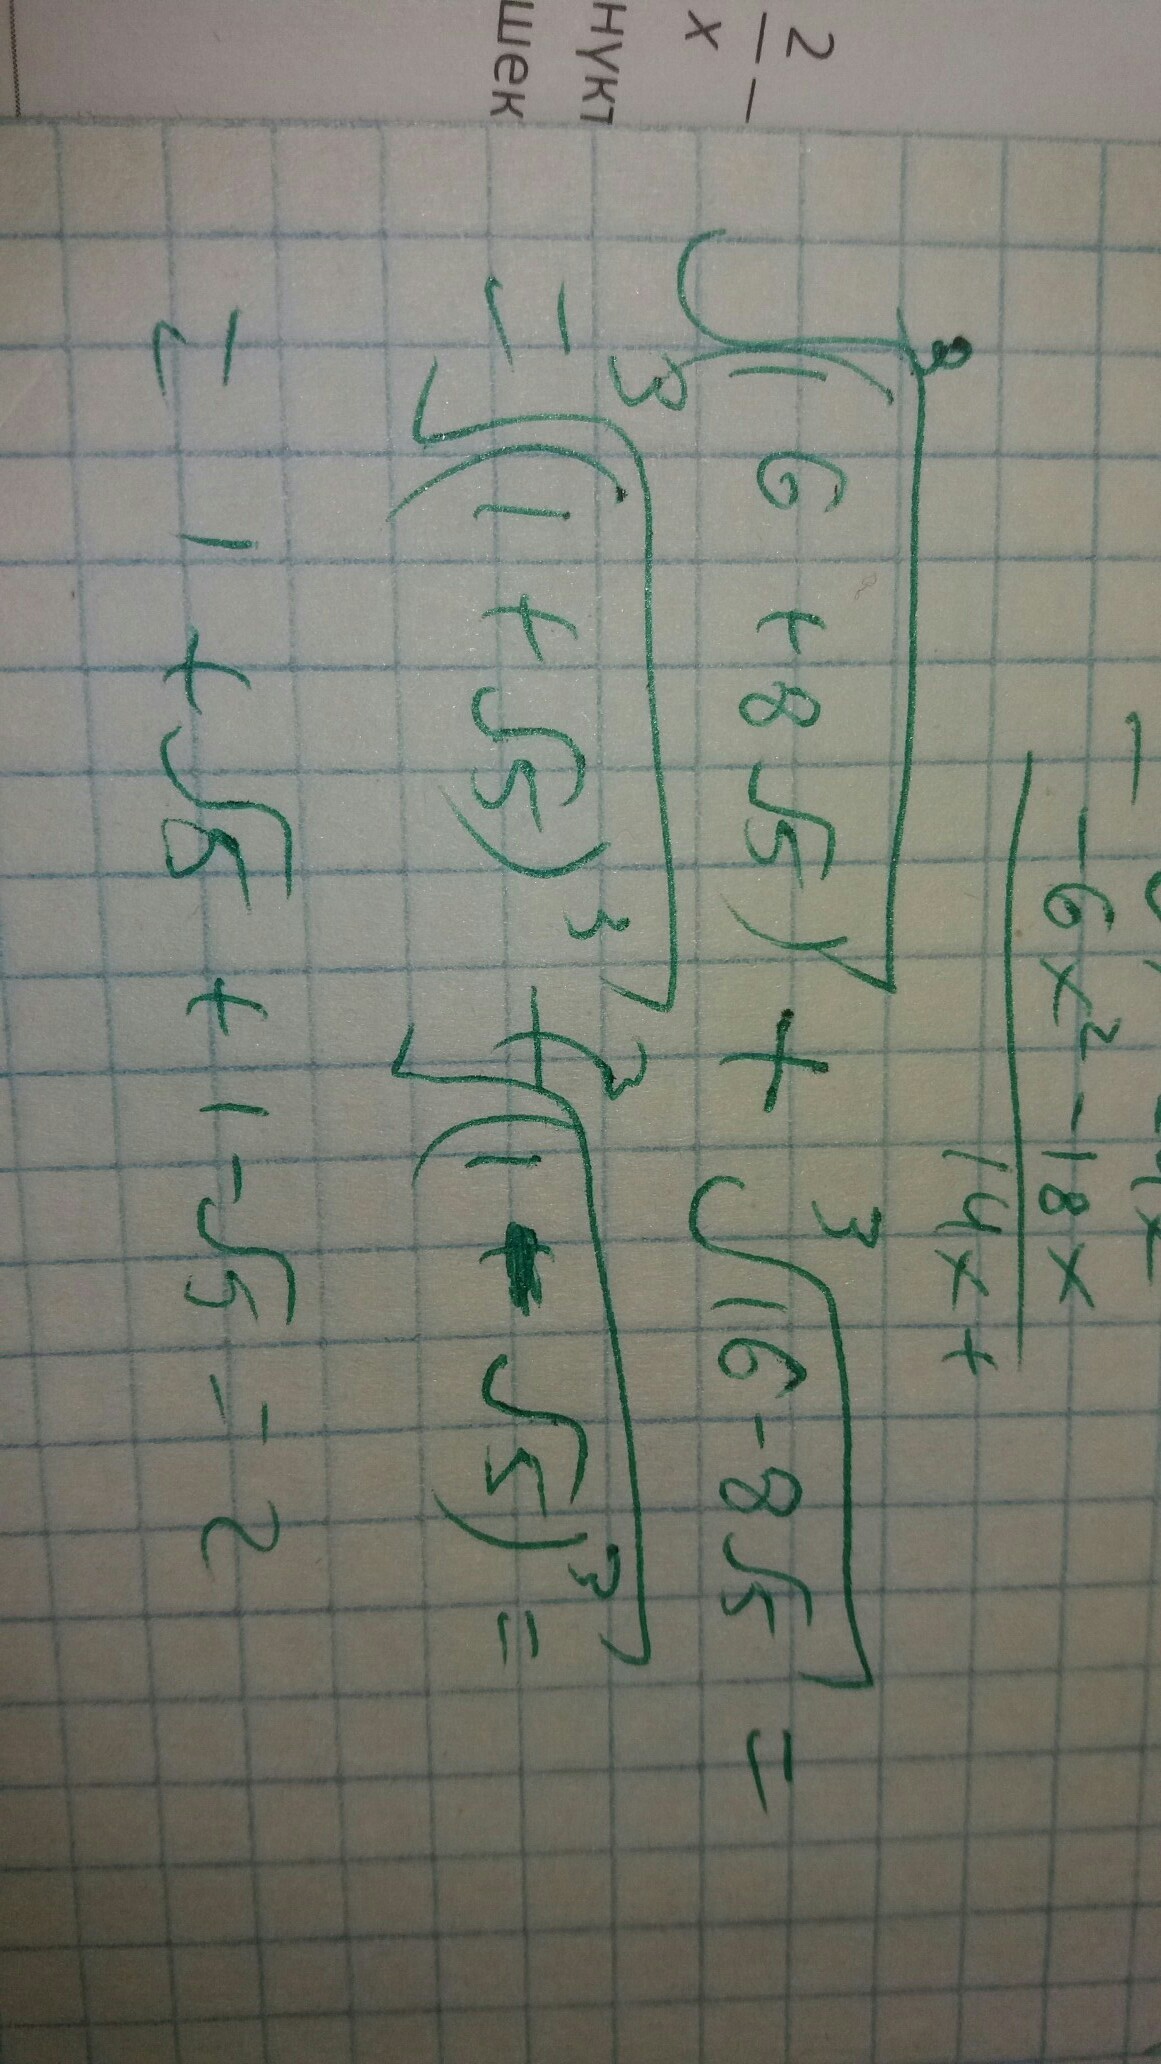 2/x -
нукт
шек
-6x² - 18x
14x +
∛(16 + 8√5) + ∛16 - 8√5 =
= ∛(1 + √5)³ + ∛(1 - √5)³ =
= 1 + √5 + 1 - √5 = 2